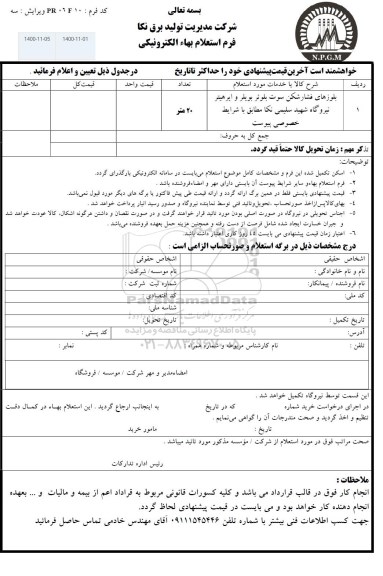 بسمه تعالی
کد فرم : PR ۰۶ F ۱۰ ویرایش : سه
شرکت مدیریت تولید برق نکا
فرم استعلام بهاء الکترونیکی
1400-11-05 1400-11-01
N.P.G.M
خواهشمند است آخرین قیمت پیشنهادی خود را حداکثر تا تاریخ درجدول ذیل تعیین و اعلام فرمائید .
ردیف شرح کالا یا خدمات مورد استعلام تعداد قیمت واحد قیمت کل ملاحظات
۱ بلوزهای فشارشکن سوت بلوئر بویلر و ایرهیتر
نیروگاه شهید سلیمی نکا مطابق با شرایط
خصوصی پیوست
۲۰ نفر
جمع کل به حروف:
تذکر مهم : زمان تحویل کالا حتما قید گردد.
توضیحات:
۱- امکان تکمیل شده این فرم و مشخصات کامل موضوع استعلام می‌بایست در سامانه الکترونیکی بارگذرای گردد.
۲- فرم استعلام بهاو سایر شرایط پیوست آن بایستی دارای مهر و امضاءفروشنده باشد .
۳- قیمت پیشنهادی بایستی فقط در همین برگه ارائه گردد و ارائه قیمت طی پیش فاکتور یا برگه های دیگر مورد قبول نمی‌باشد.
۴- بهای‌کالا پس‌ازاخذ صورتحساب ،تحویل‌وتائید فنی توسط نماینده نیروگاه و صدور رسید انبار پرداخت خواهد شد .
۵- اجناس تحویلی در نیروگاه در صورت اصلی بودن مورد تائید قرار خواهند گرفت و در صورت نقصان و داشتن هرگونه اشکال، کالا عودت خواهد شد
و جبران خسارت ایجاد شده شامل فرصت از دست رفته و همچنین هزینه حمل بعهده فروشنده می‌باشد .
۶- اعتبار زمان قیمت پیشنهادی می بایست روز کاری اعتبار داشته باشد
درج مشخصات ذیل در برگه استعلام و صورتحساب الزامی است :
اشخاص حقیقی اشخاص حقوقی
نام و نام خانوادگی : نام موسسه/ شرکت :
نام فروشنده / پیمانکار: شماره ثبت شرکت :
کد ملی: کد اقتصادی
شناسه ملی:
تاریخ تکمیل : تاریخ تحویل:
آدرس: کد پستی :
تلفن : نام کارشناس مربوطه و شماره همراه نمابر :
ParsNamadData
۰۲۱-۸۸۳۴۹۶۷۰
امضاءمدیر و مهر شرکت / موسسه / فروشگاه
این قسمت توسط نیروگاه تکمیل خواهد شد .
در اجرای درخواست خرید شماره که در تاریخ به اینجانب ارجاع گردید . این استعلام بهاء در کمال دقت
تنظیم و اخذ گردید و صحت مندرجات آن را گواهی می‌نمایم .
تاریخ : مامور خرید
صحت مراتب فوق در مورد استعلام از شرکت / مؤسسه مذکور مورد تائید میباشد .
رئیس اداره تدارکات
ملاحظات :
انجام کار فوق در قالب قرارداد می باشد و کلیه کسورات قانونی مربوط به قراداد اعم از بیمه و مالیات و ... بعهده
انجام دهنده کار خواهد بود و می بایست در قیمت پیشنهادی لحاظ گردد.
جهت کسب اطلاعات فنی بیشتر با شماره تلفن ۰۹۱۱۱۵۴۵۴۴۶ آقای مهندس خادمی تماس حاصل فرمائید